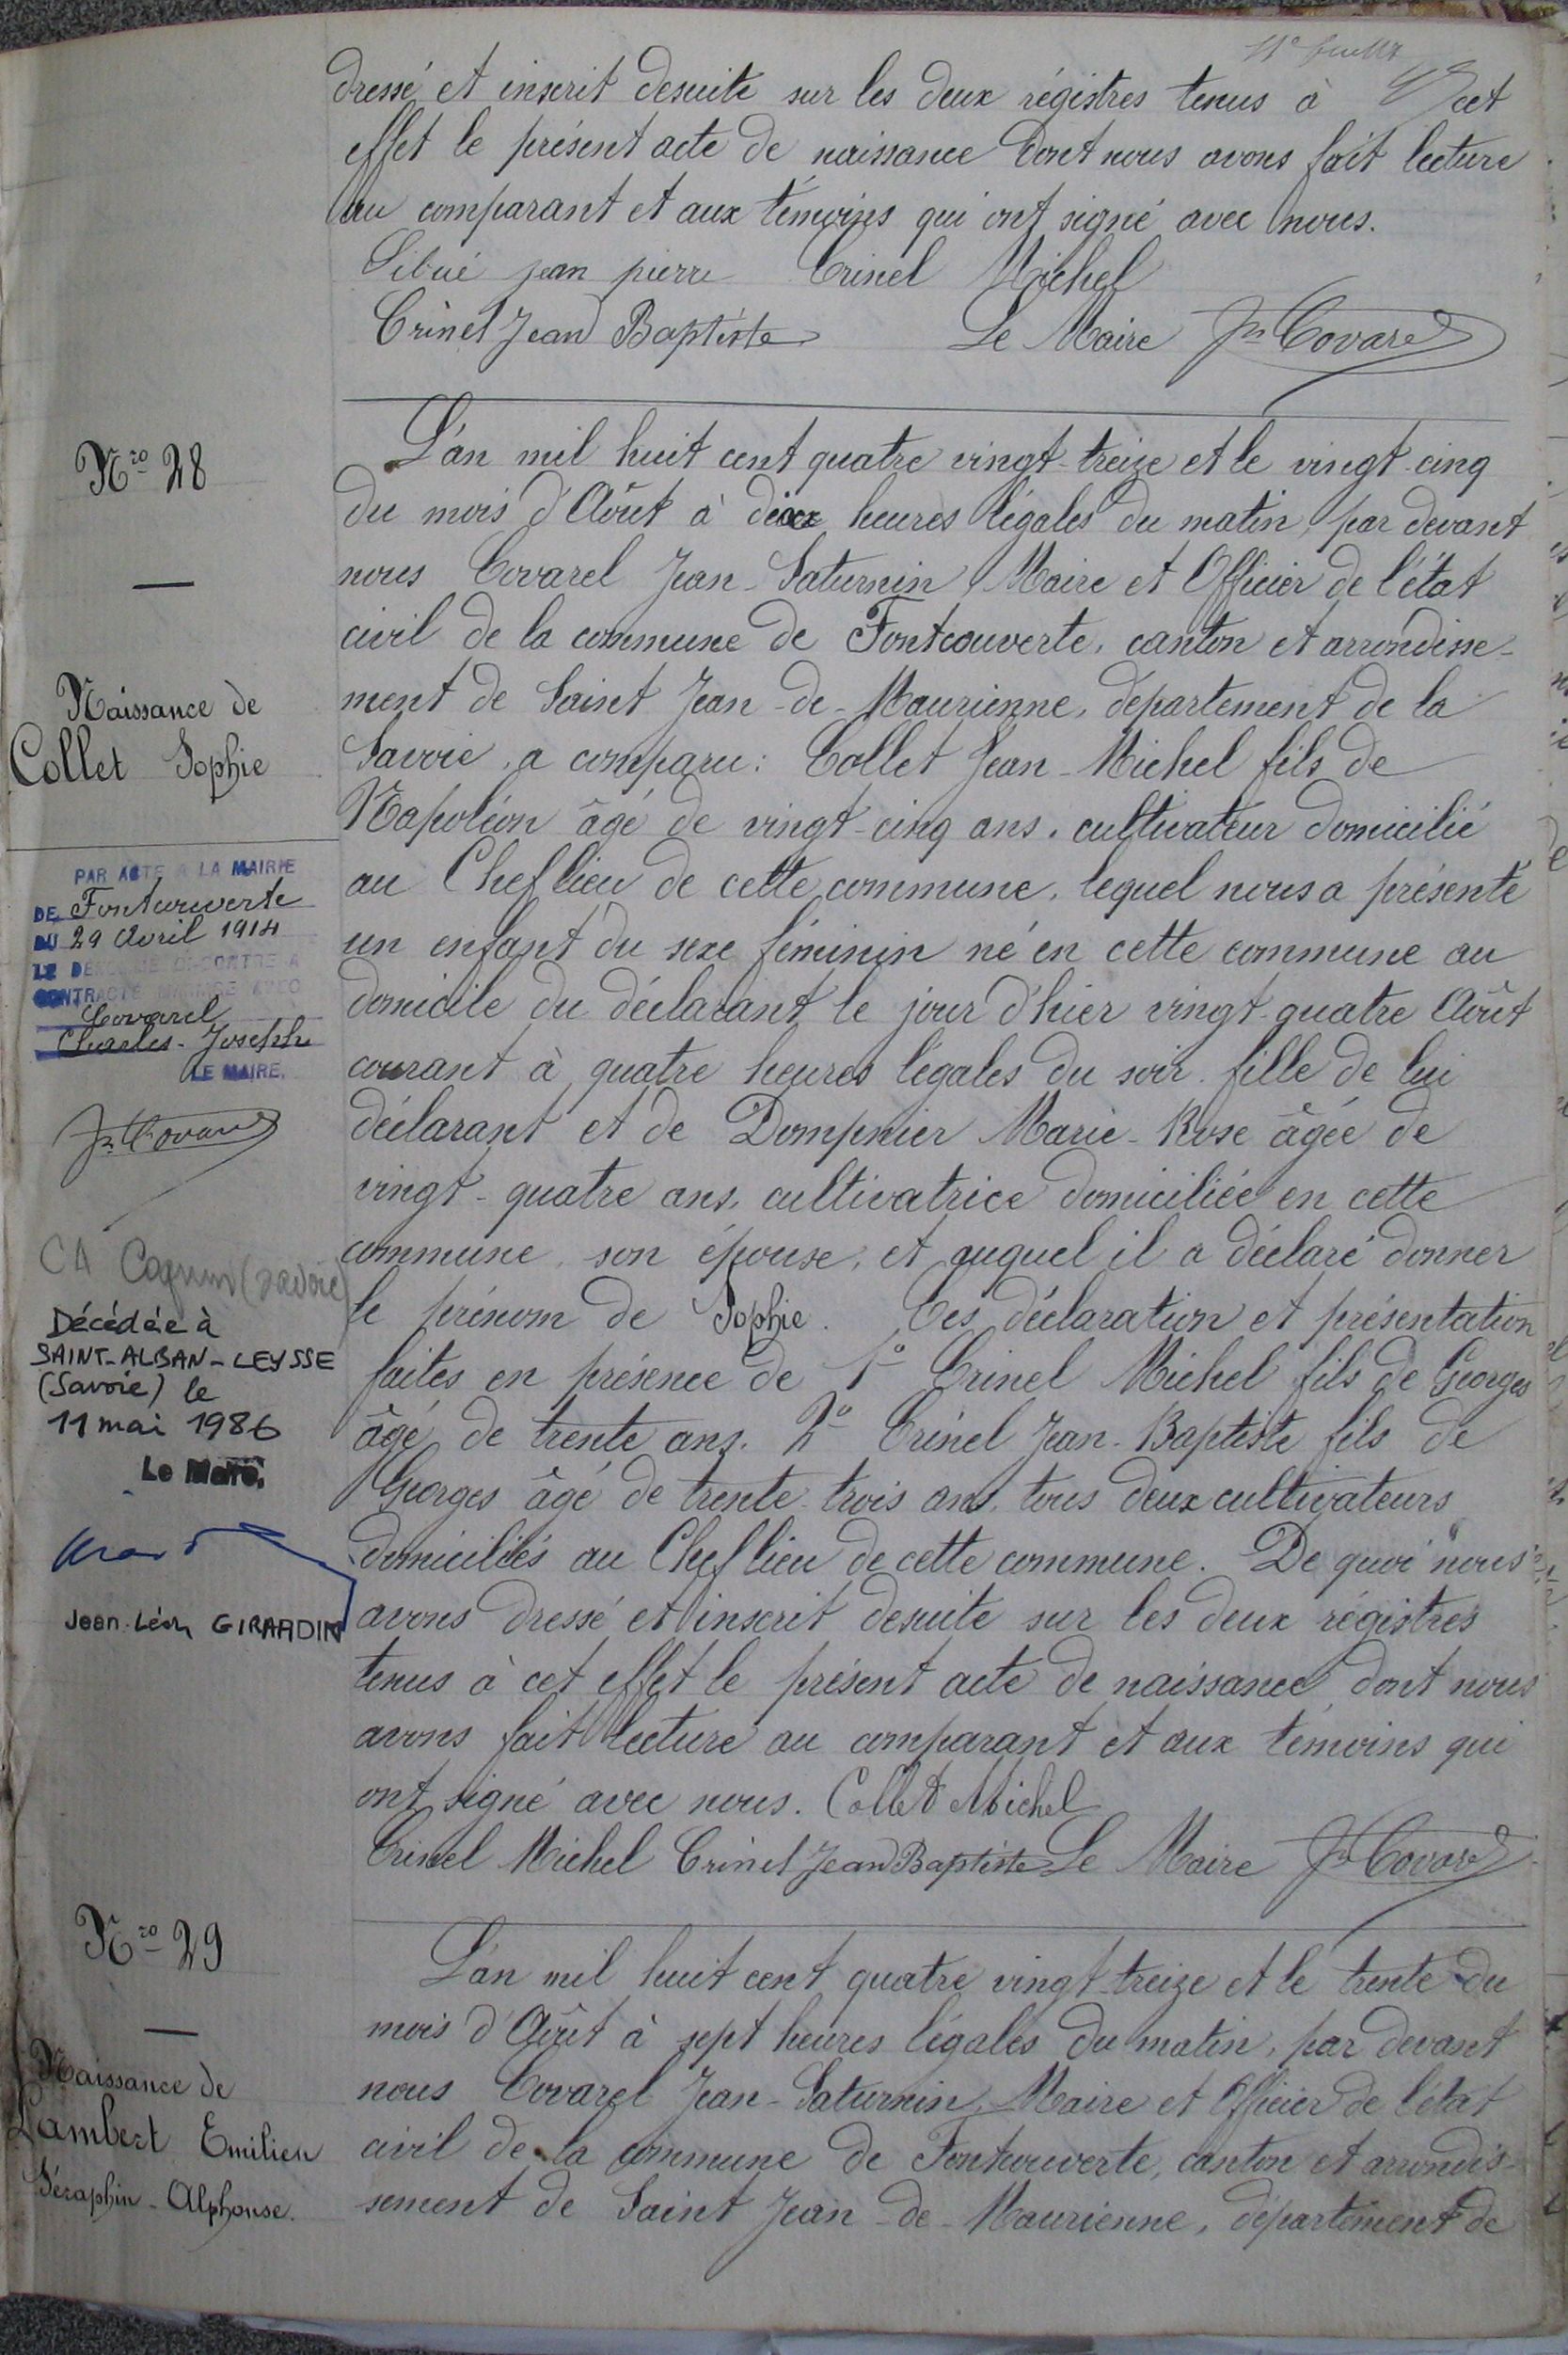 11e feuillet
dressé et inscrit desuite sur les deux régistres tenus à cet
effet le présent acte de naissance dont nous avons fait lecture
au comparant et aux témoins qui ont signé avec nous.
Sibué jean pierre Crinel Michel
Crinel Jean Baptiste Le Maire Jn Covarel
Nro 28
Naissance de
Collet Sophie
PAR ACTE A LA MAIRIE
DE Fontcouverte
DU 29 Avril 1914
LE DENOMME CI-CONTRE A
CONTRACTE MARIAGE AVEC
Covarel
Charles-Joseph
LE MAIRE.
Jn Covarel
(Savoie)
Décédée à
SAINT-ALBAN-LEYSSE
(Savoie) le
11 mai 1986
Le Maire,
Jean-Léon GIRARDIN
L'an mil huit cent quatre vingt-treize et le vingt-cinq
du mois d'Août à dix heures légales du matin, par devant
nous Covarel Jean-Saturnin Maire et Officier de l'état
civil de la commune de Fontcouverte, canton et arrondisse-
ment de Saint Jean-de-Maurienne, département de la
Savoie, a comparu: Collet Jean-Michel fils de
Napoléon âgé de vingt-cinq ans, cultivateur domicilié
au Cheflieu de cette commune, lequel nous a présenté
un enfant du sexe féminin né en cette commune au
domicile du déclarant le jour d'hier vingt-quatre Août
courant à quatre heures légales du soir fille de lui
déclarant et de Dompnier Marie-Rose âgée de
vingt-quatre ans, cultivatrice domiciliée en cette
commune, son épouse, et auquel il a déclaré donner
le prénom de Sophie. Ces déclaration et présentation
faites en présence de 1° Crinel Michel fils de Georges
âgé de trente ans. 2° Crinel Jean-Baptiste fils de
Georges âgé de trente-trois ans, tous deux cultivateurs
domiciliés au Cheflieu de cette commune. De quoi nous
avons dressé et inscrit desuite sur les deux régistres
tenus à cet effet le présent acte de naissance dont nous
avons fait lecture au comparant et aux témoins qui
ont signé avec nous. Collet Michel
Crinel Michel Crinel Jean Baptiste Le Maire Jn Covarel
Nro 29
Naissance de
Lambert Emilien
Séraphin-Alphonse.
L'an mil huit cent quatre vingt-treize et le trente du
mois d'Août à sept heures légales du matin, par devant
nous Covarel Jean-Saturnin, Maire et Officier de l'état
civil de la commune de Fontcouverte, canton et arrondis-
sement de Saint Jean-de-Maurienne, département de